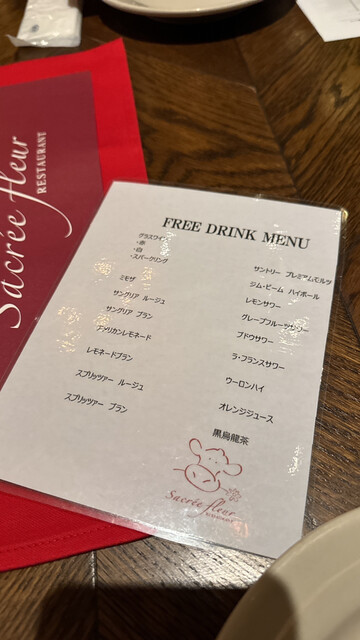 Sacrée fleur
RESTAURANT
FREE DRINK MENU
グラスワイン
・赤
・白
・スパークリング
ミモザ
サングリア ルージュ
サングリア ブラン
アメリカンレモネード
レモネードブラン
スプリッツァー ルージュ
スプリッツァー ブラン
サントリー プレミアムモルツ
ジム・ビーム ハイボール
レモンサワー
グレープフルーツサワー
ブドウサワー
ラ・フランスサワー
ウーロンハイ
オレンジジュース
黒烏龍茶
Sacrée fleur